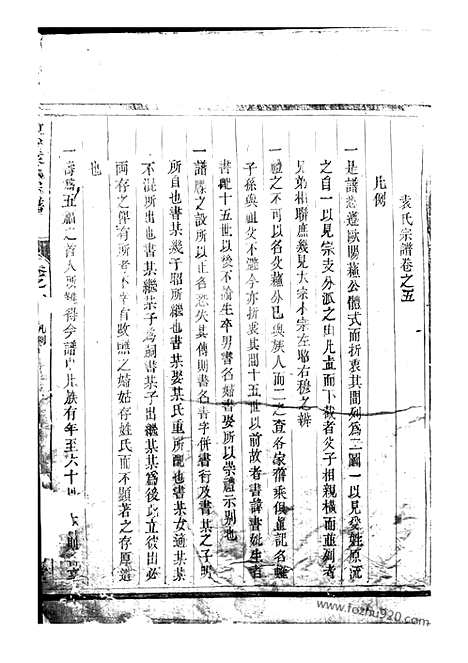 袁氏宗譜卷之五
凡例
一是譜悉遵歐陽蘇公體式而折衷其間列爲二圖一以見受姓原流
之自一以見宗支分派之由凡直而下級者父子相親橫而並列者
兄弟相聯庶幾見大宗小宗左昭右穆之辨
一禮之不可以名父蘇公已與族人而二之查各家舊乘俱直記名雖
子孫與祖父不避今亦折衷其間十五世以前故者書諱書妣生者
書配十五世以後不論生卒男書名婦書娶所以崇禮示別也
一譜牒之設所以正名恐失其傳則書名書字併書行及書某之子明
所自也書某幾子昭所繼也書某娶某氏重所配也書某女適某某
不混所出也書某繼某子爲嗣書某子出繼某某爲後此立彼出必
兩存之俾有所考不幸有敗壞之婦姑存姓氏而不顯著之存厚道
也
一壽爲五福之首人所難得今譜中凡族有年至六十
凡例
www.fozhu920.com